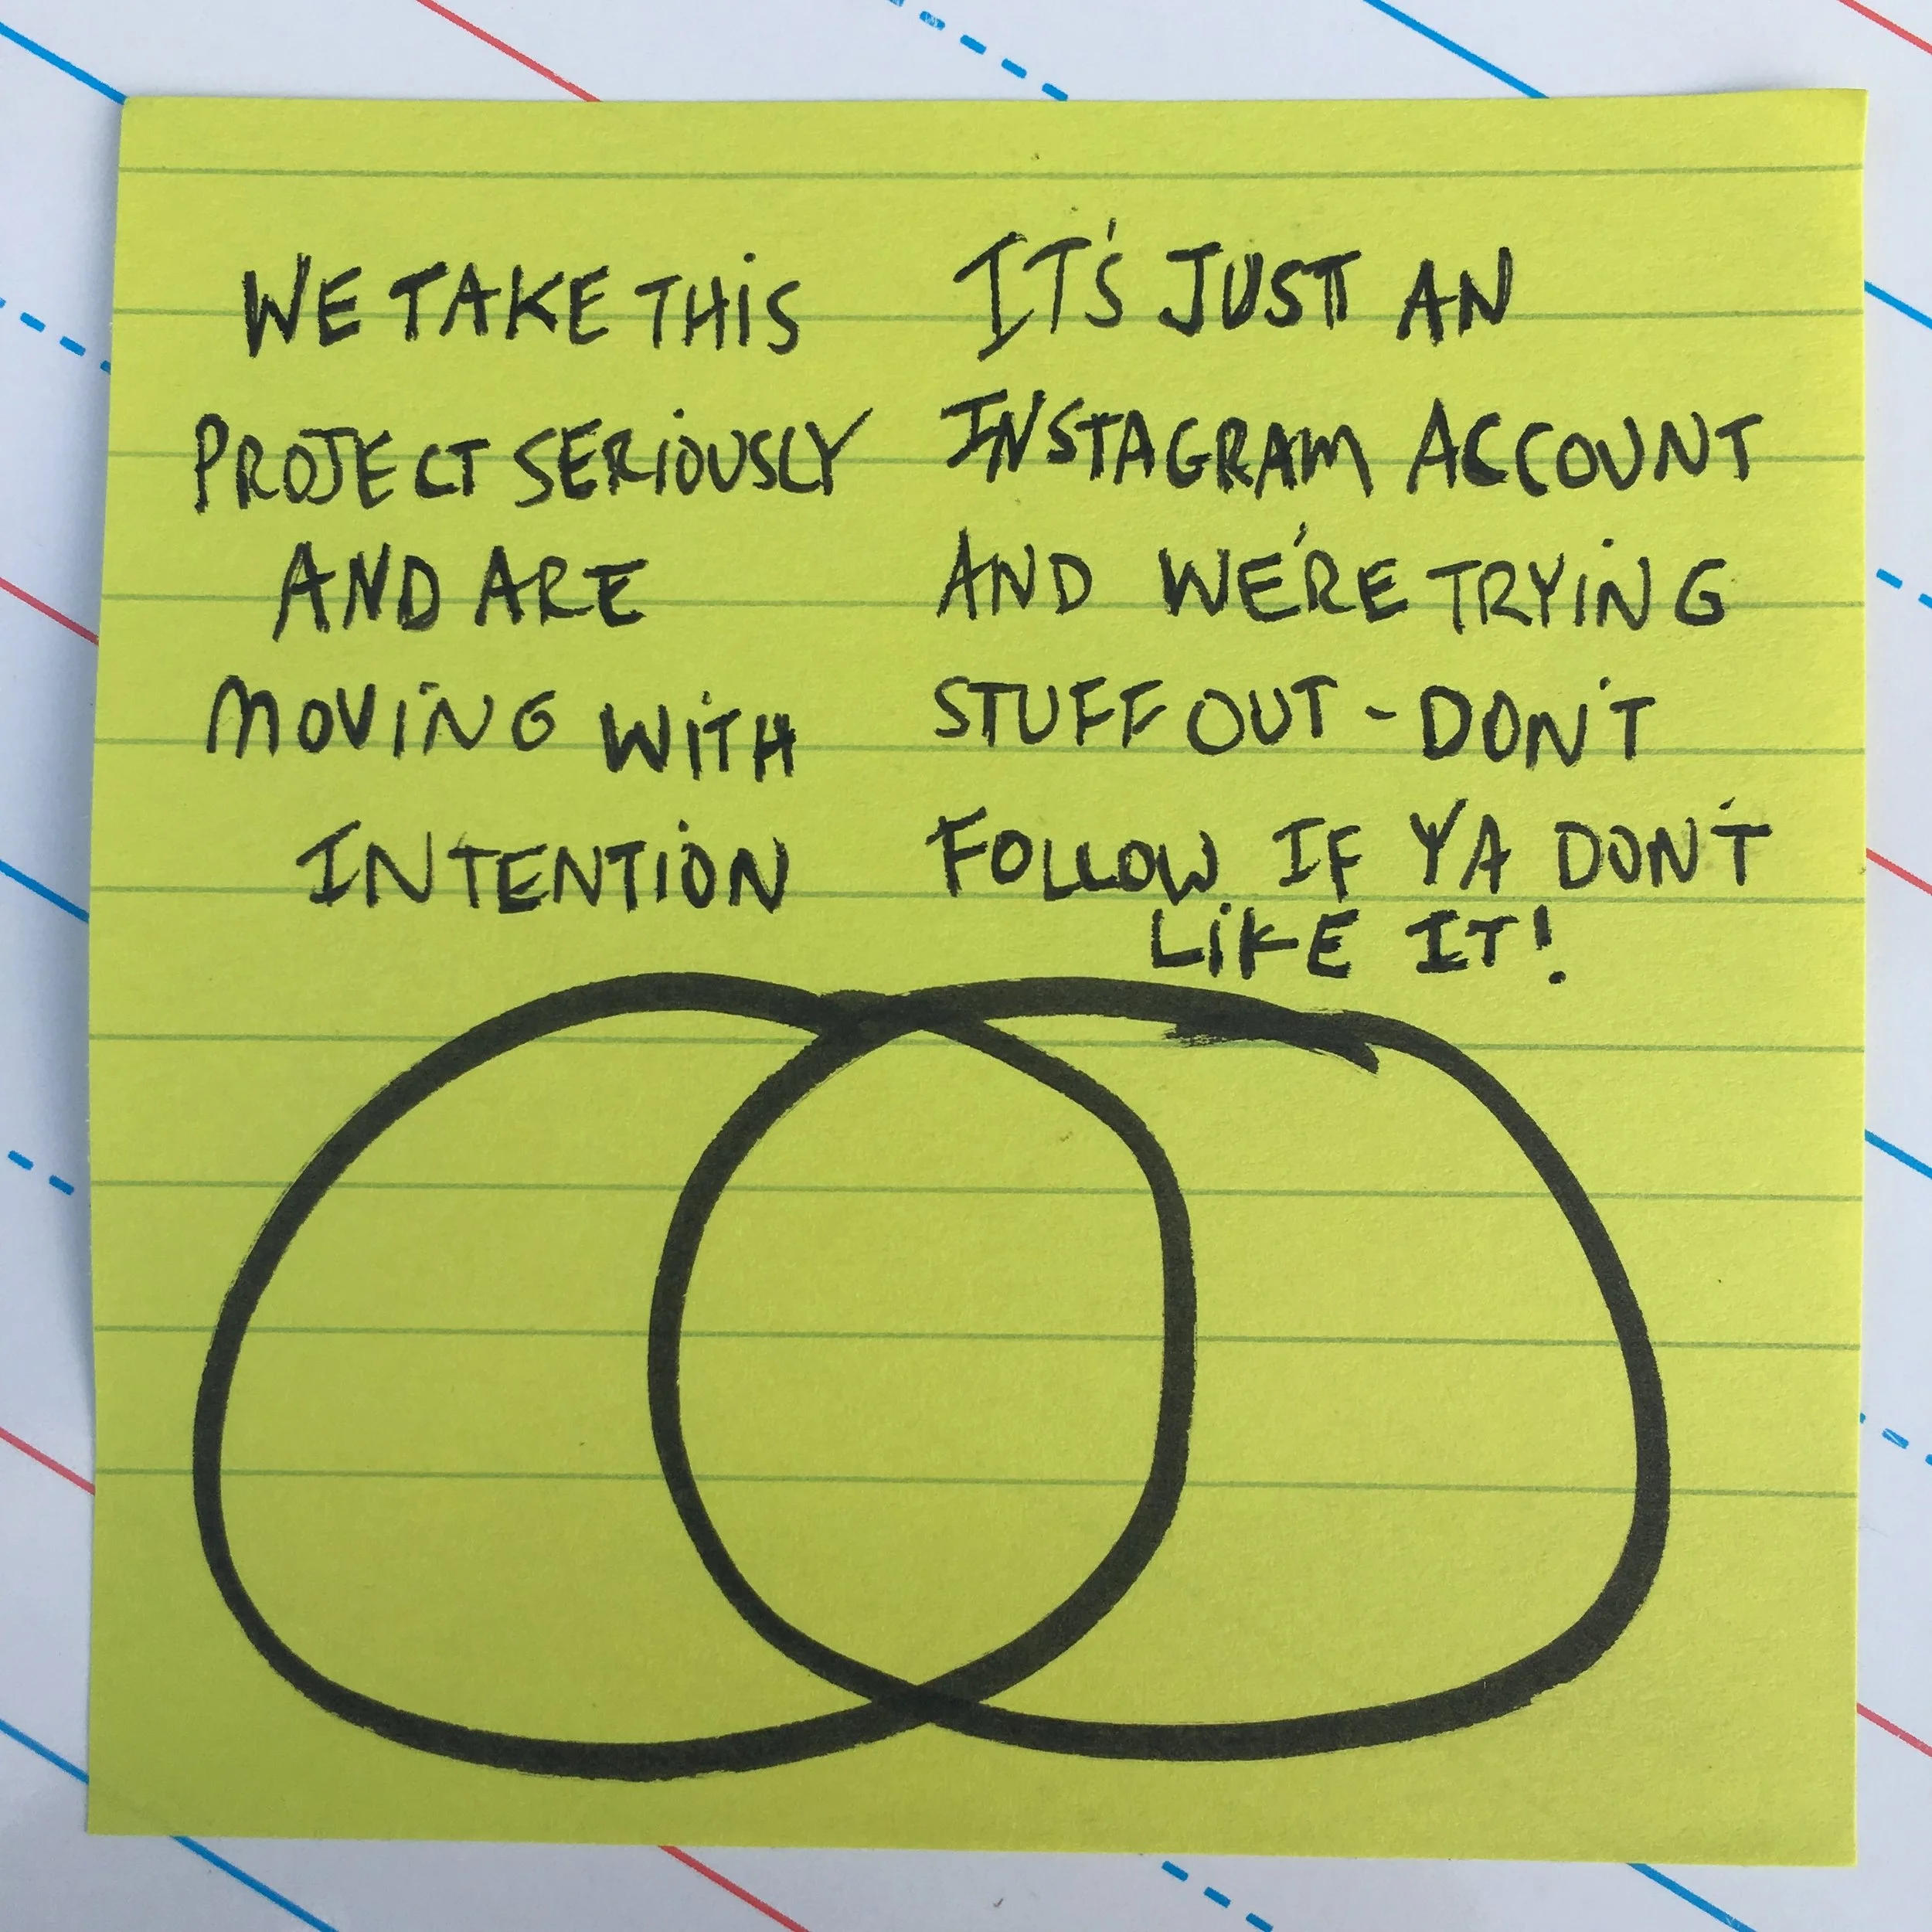 WE TAKE THIS
PROJECT SERIOUSLY
AND ARE
MOVING WITH
INTENTION
IT'S JUST AN
INSTAGRAM ACCOUNT
AND WE'RE TRYING
STUFF OUT - DON'T
FOLLOW IF YA DON'T
LIKE IT!